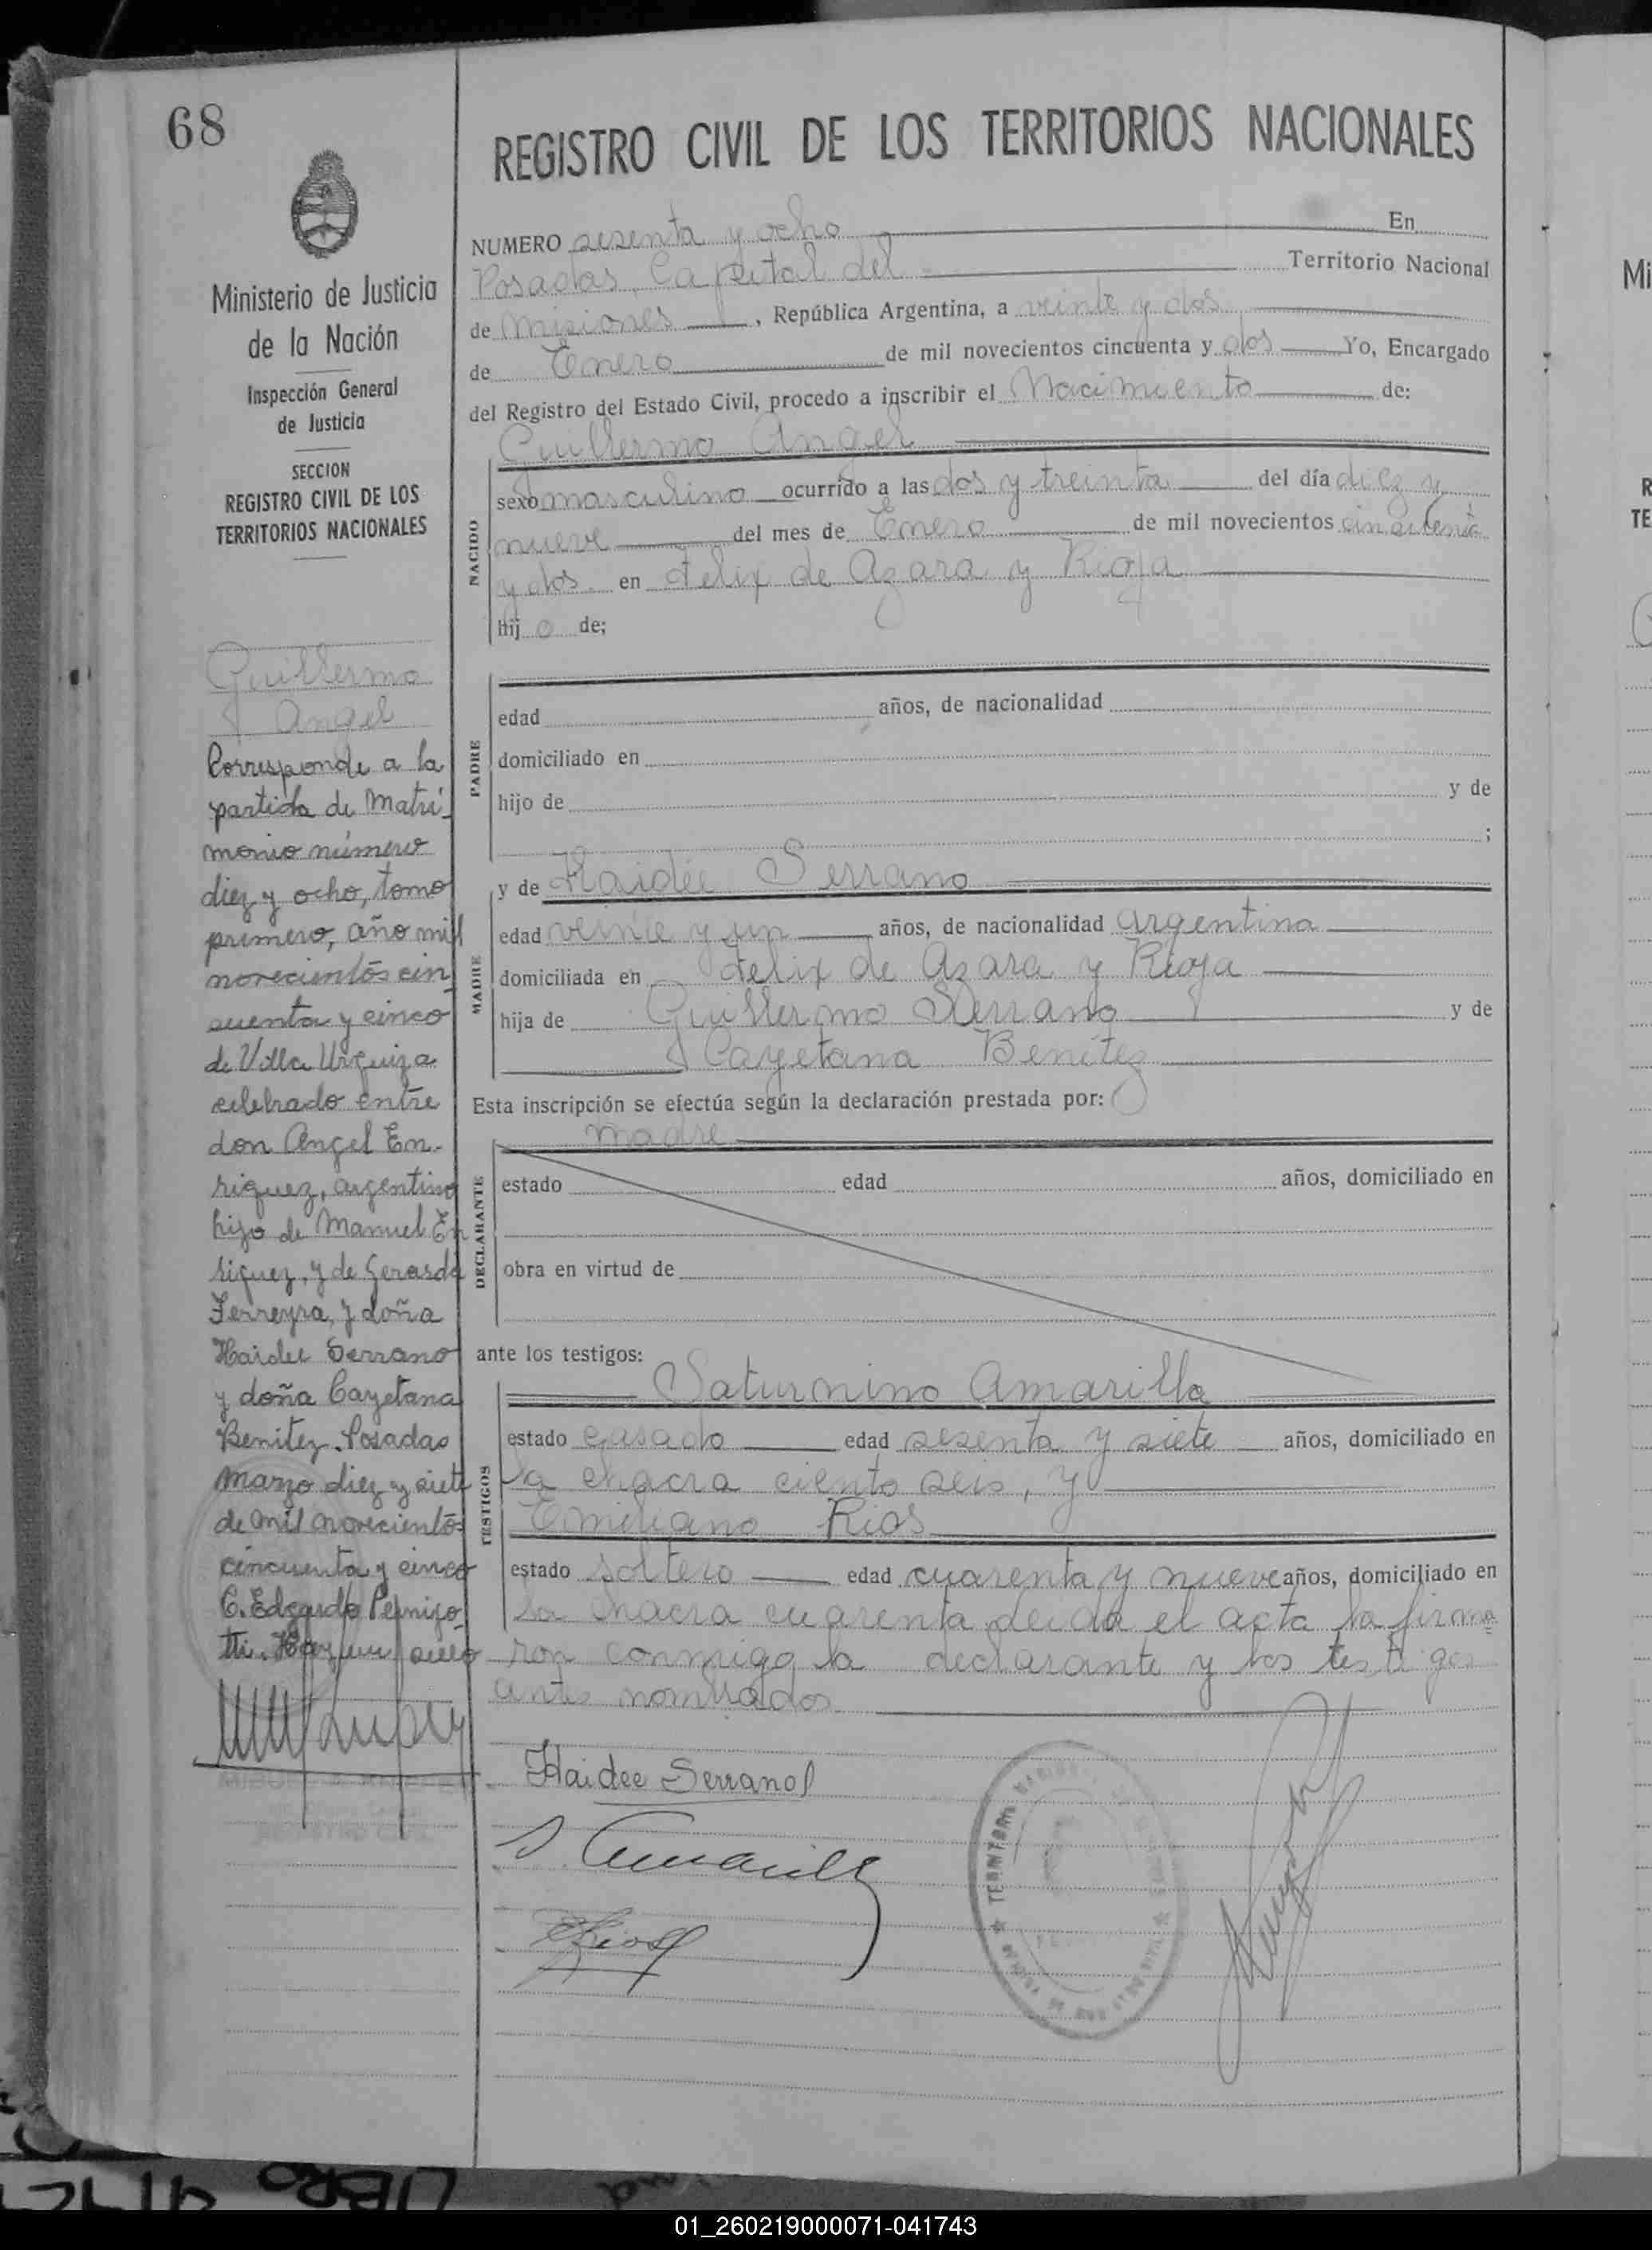 68
Ministerio de Justicia
de la Nación
Inspección General
de Justicia
SECCION
REGISTRO CIVIL DE LOS
TERRITORIOS NACIONALES
Guillermo
Angel
Corresponde a la
partida de Matri-
monio número
diez y ocho, tomo
primero, año mil
novecientos cin
cuenta y cinco
de Villa Urquiza
celebrado entre
don Angel En-
riquez, argentino
hijo de Manuel En
riquez, y de Gerarda
Ferreyra, y doña
Haidee Serrano
y doña Cayetana
Benitez. Posadas
Marzo diez y siete
de mil novecientos
cincuenta y cinco
C. Edgardo
Hay un sello
REGISTRO CIVIL DE LOS TERRITORIOS NACIONALES
NUMERO sesenta y ocho En
Posadas, Capital del Territorio Nacional
de Misiones, República Argentina, a veinte y dos
de Enero de mil novecientos cincuenta y dos Yo, Encargado
del Registro del Estado Civil, procedo a inscribir el Nacimiento de:
Guillermo Angel
NACIDO
sexo masculino ocurrido a las dos y treinta del día diez y
nueve del mes de Enero de mil novecientos cincuenta
y dos en Felix de Azara y Rioja
hij o de;
PADRE
edad años, de nacionalidad
domiciliado en
hijo de y de
;
MADRE
y de Haidée Serrano
edad veinte y un años, de nacionalidad argentina
domiciliada en Felix de Azara y Rioja
hija de Guillermo Serrano y de
Cayetana Benítez
Esta inscripción se efectúa según la declaración prestada por:
madre
DECLARANTE
estado edad años, domiciliado en
obra en virtud de
ante los testigos:
TESTIGOS
Saturnino Amarilla
estado casado edad sesenta y siete años, domiciliado en
la chacra ciento seis, y
Emiliano Rios
estado soltero edad cuarenta y nueve años, domiciliado en
la chacra cuarenta. Leida el acta la firma
ron conmigo la declarante y los testigos
antes nombrados
Haidee Serrano
S. Amarilla
E Rios
01_260219000071-041743